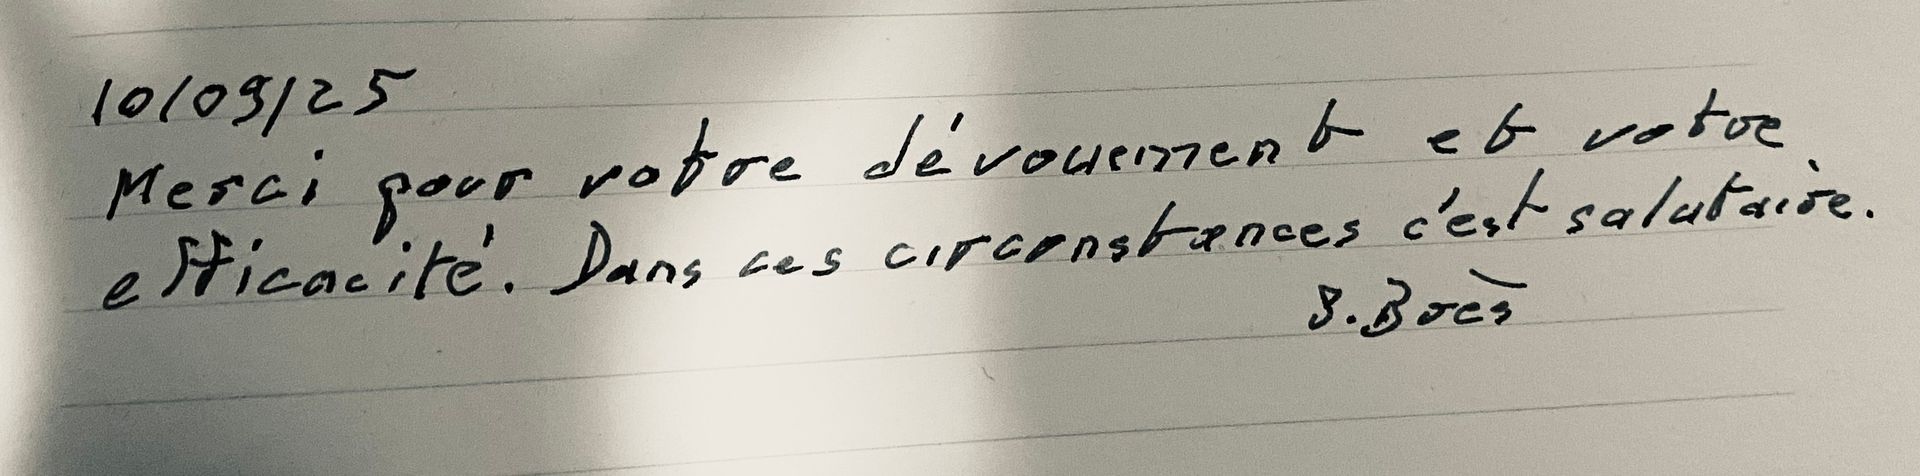 10/09/25
Merci pour votre dévouement et votre
efficacité. Dans ces circonstances c'est salutaire.
S. Brès